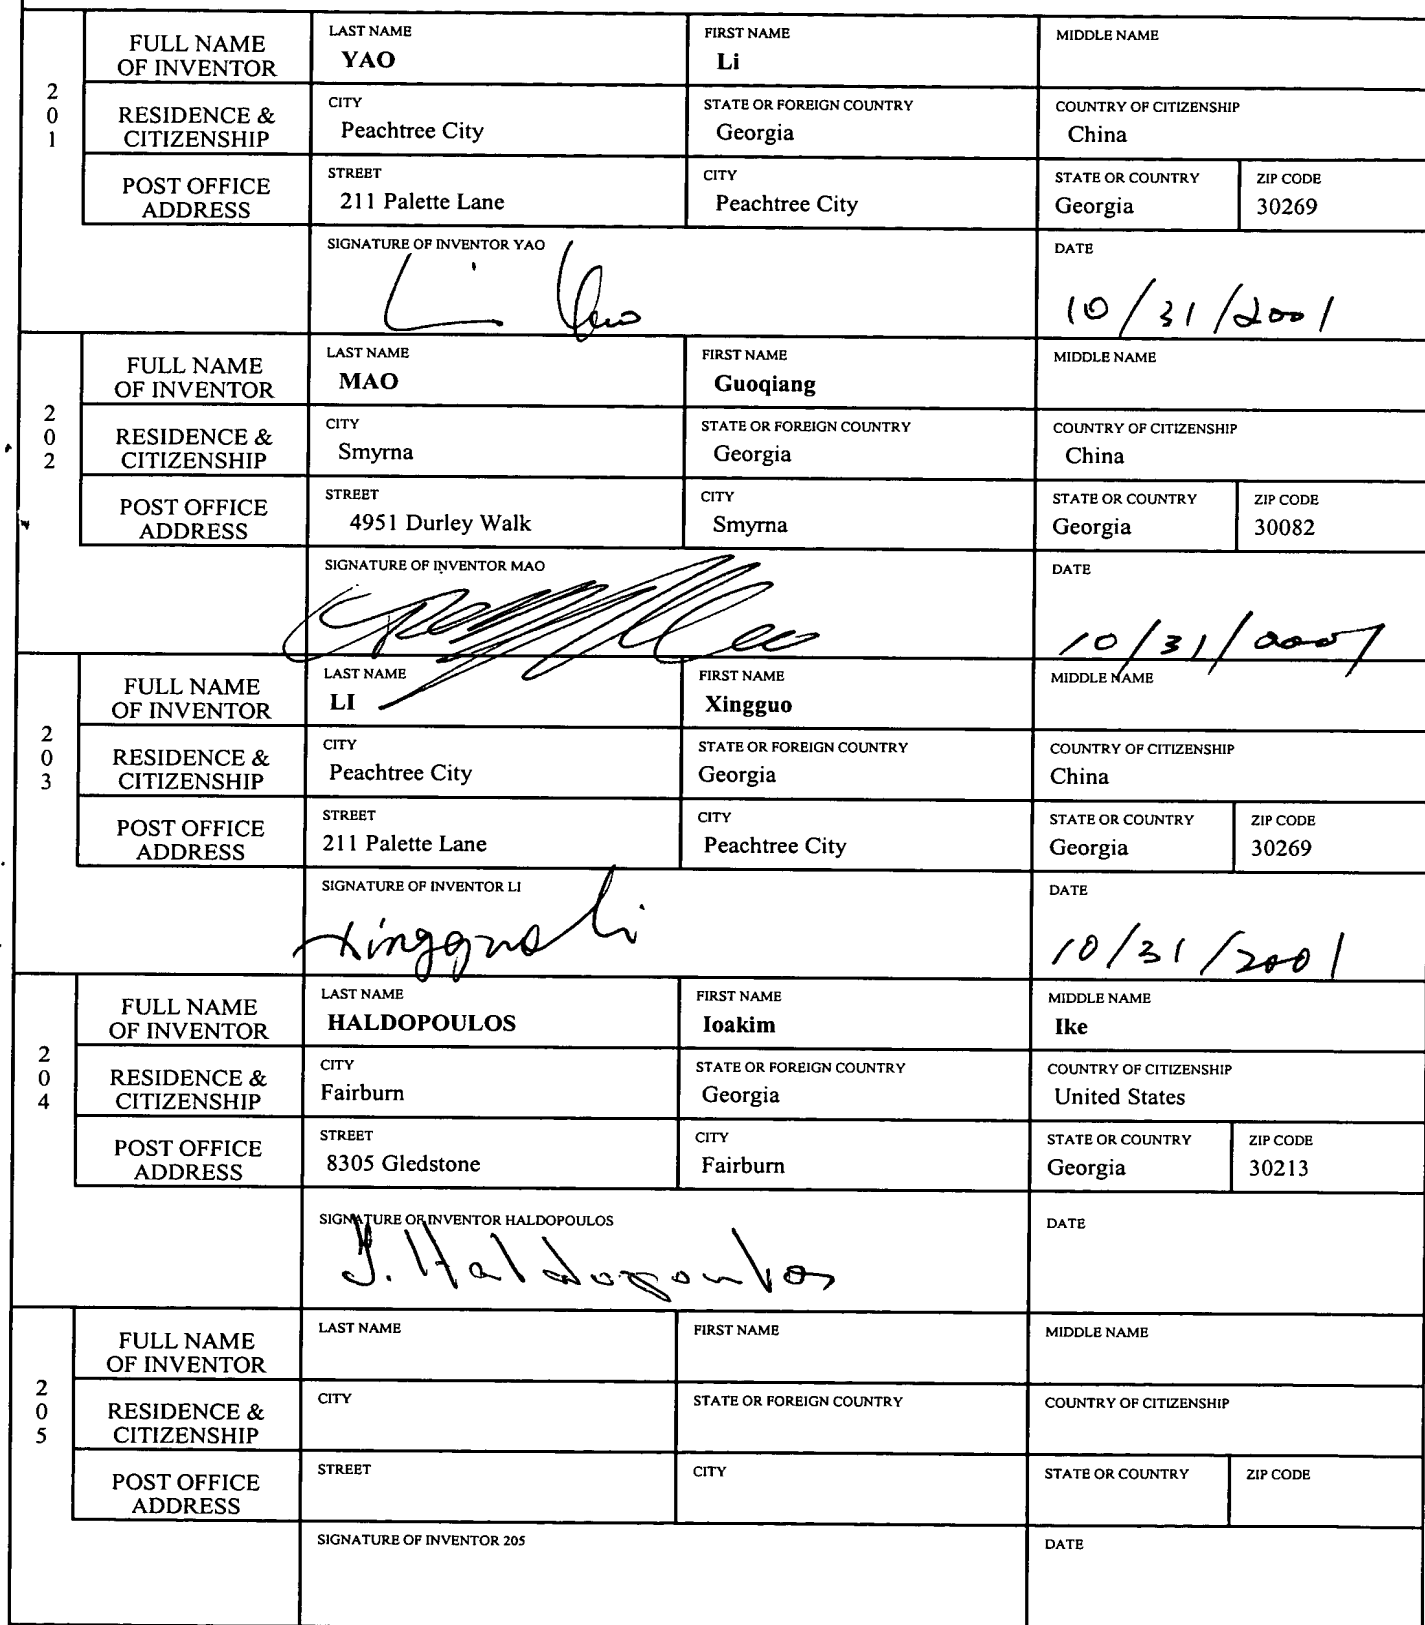 201
FULL NAME OF INVENTOR
LAST NAME
YAO
FIRST NAME
Li
MIDDLE NAME
RESIDENCE & CITIZENSHIP
CITY
Peachtree City
STATE OR FOREIGN COUNTRY
Georgia
COUNTRY OF CITIZENSHIP
China
POST OFFICE ADDRESS
STREET
211 Palette Lane
CITY
Peachtree City
STATE OR COUNTRY
Georgia
ZIP CODE
30269
SIGNATURE OF INVENTOR YAO
Li Yao
DATE
10/31/2001
202
FULL NAME OF INVENTOR
LAST NAME
MAO
FIRST NAME
Guoqiang
MIDDLE NAME
RESIDENCE & CITIZENSHIP
CITY
Smyrna
STATE OR FOREIGN COUNTRY
Georgia
COUNTRY OF CITIZENSHIP
China
POST OFFICE ADDRESS
STREET
4951 Durley Walk
CITY
Smyrna
STATE OR COUNTRY
Georgia
ZIP CODE
30082
SIGNATURE OF INVENTOR MAO
DATE
10/31/2001
203
FULL NAME OF INVENTOR
LAST NAME
LI
FIRST NAME
Xingguo
MIDDLE NAME
RESIDENCE & CITIZENSHIP
CITY
Peachtree City
STATE OR FOREIGN COUNTRY
Georgia
COUNTRY OF CITIZENSHIP
China
POST OFFICE ADDRESS
STREET
211 Palette Lane
CITY
Peachtree City
STATE OR COUNTRY
Georgia
ZIP CODE
30269
SIGNATURE OF INVENTOR LI
Xingguo Li
DATE
10/31/2001
204
FULL NAME OF INVENTOR
LAST NAME
HALDOPOULOS
FIRST NAME
Ioakim
MIDDLE NAME
Ike
RESIDENCE & CITIZENSHIP
CITY
Fairburn
STATE OR FOREIGN COUNTRY
Georgia
COUNTRY OF CITIZENSHIP
United States
POST OFFICE ADDRESS
STREET
8305 Gledstone
CITY
Fairburn
STATE OR COUNTRY
Georgia
ZIP CODE
30213
SIGNATURE OF INVENTOR HALDOPOULOS
I. Haldopoulos
DATE
205
FULL NAME OF INVENTOR
LAST NAME
FIRST NAME
MIDDLE NAME
RESIDENCE & CITIZENSHIP
CITY
STATE OR FOREIGN COUNTRY
COUNTRY OF CITIZENSHIP
POST OFFICE ADDRESS
STREET
CITY
STATE OR COUNTRY
ZIP CODE
SIGNATURE OF INVENTOR 205
DATE